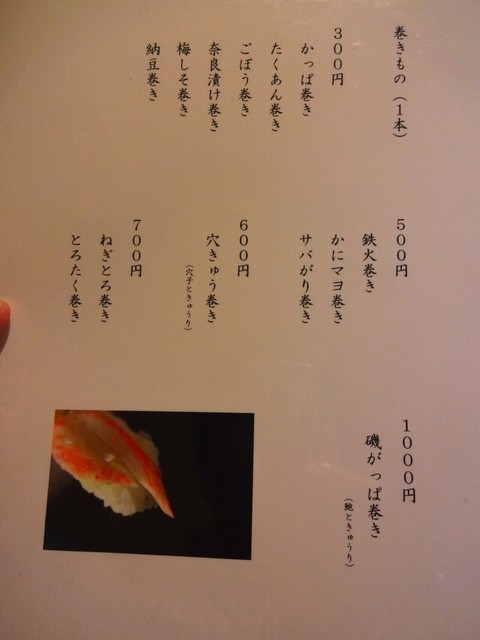 巻きもの（１本）
３００円
かっぱ巻き
たくあん巻き
ごぼう巻き
奈良漬け巻き
梅しそ巻き
納豆巻き
５００円
鉄火巻き
かにマヨ巻き
サバがり巻き
６００円
穴きゅう巻き
（穴子ときゅうり）
７００円
ねぎとろ巻き
とろたく巻き
１０００円
磯がっぱ巻き
（鮑ときゅうり）